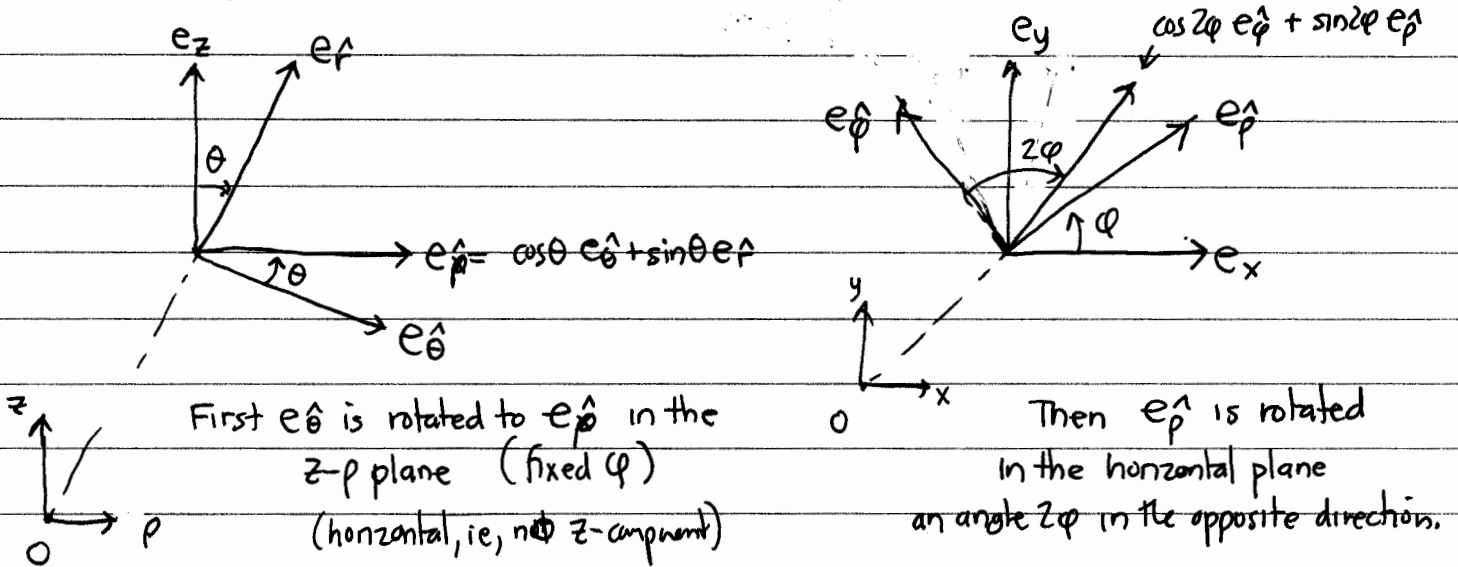 e_z e_r̂
θ
e_ρ̂ = cosθ e_θ̂ + sinθ e_r̂
θ
e_θ̂
z
ρ
O
First e_θ̂ is rotated to e_ρ̂ in the
z-ρ plane (fixed φ)
(horizontal, ie, no z-component)
cos2φ e_φ̂ + sin2φ e_ρ̂
e_y
e_φ̂ e_ρ̂
2φ
φ
e_x
y
x
O
Then e_ρ̂ is rotated
in the horizontal plane
an angle 2φ in the opposite direction.